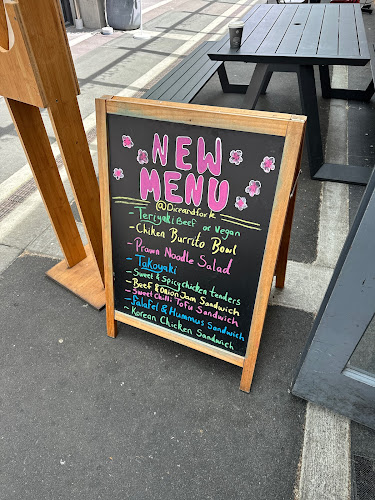 NEW
MENU
@Direandfork
- Teriyaki Beef or Vegan
- Chiken Burrito Bowl
- Prawn Noodle Salad
- Takoyaki
- Sweet & Spicy chicken tenders
- Beef & Onion Jam Sandwich
- Sweet Chilli Tofu Sandwich
- Falafel & Hummus Sandwich
- Korean Chicken Sandwich